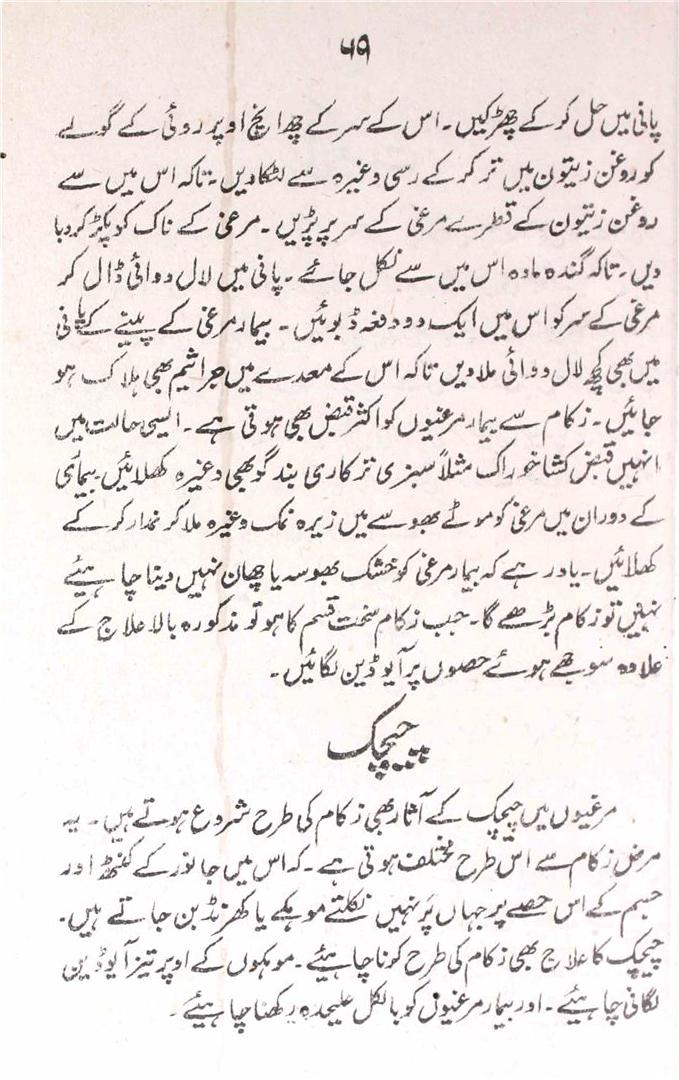 ۵۹
پانی میں حل کر کے چھڑکیں۔ اس کے سر کے چھ انچ اوپر روئی کے گولے
کو روغن زیتون میں تر کر کے رسی وغیرہ سے لٹکا دیں۔ تاکہ اس میں سے
روغن زیتون کے قطرے مرغی کے سر پر پڑیں۔ مرغی کے ناک کو پکڑ کر دبا
دیں۔ تاکہ گندہ مادہ اس میں سے نکل جائے۔ پانی میں لال دوائی ڈال کر
مرغی کے سر کو اس میں ایک دو دفعہ ڈبوئیں۔ بیمار مرغی کے پینے کے پانی
میں بھی کچھ لال دوائی ملا دیں تاکہ اس کے معدے میں جراثیم بھی ہلاک ہو
جائیں۔ زکام سے بیمار مرغیوں کو اکثر قبض بھی ہوتی ہے۔ ایسی حالت میں
انہیں قبض کشا خوراک مثلاً سبزی ترکاری بند گوبھی وغیرہ کھلائیں۔ بیماری
کے دوران میں مرغی کو موٹے بھوسے میں زیرہ نمک وغیرہ ملا کر نمدار کر کے
کھلائیں۔ یاد رہے کہ بیمار مرغی کو خشک بھوسہ یا چھان نہیں دینا چاہیئے
نہیں تو زکام بڑھے گا۔ جب زکام سخت قسم کا ہو تو مذکورہ بالا علاج کے
علاوہ سوجھے ہوئے حصوں پر آیوڈین لگائیں۔
چیچک
مرغیوں میں چیچک کے آثار بھی زکام کی طرح شروع ہوتے ہیں۔ یہ
مرض زکام سے اس طرح مختلف ہوتی ہے۔ کہ اس میں جانور کے کنٹھ اور
جسم کے اس حصے پر جہاں پَر نہیں نکلتے موہکے یا کھرنڈ بن جاتے ہیں۔
چیچک کا علاج بھی زکام کی طرح کرنا چاہیئے۔ موہکوں کے اوپر تیز آیوڈین
لگانی چاہیئے۔ اور بیمار مرغیوں کو بالکل علیحدہ رکھنا چاہیئے۔